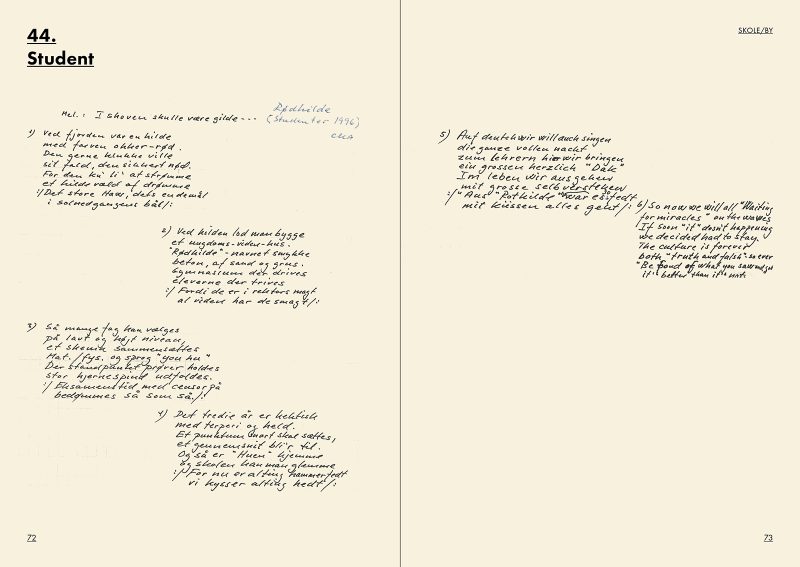 44.
Student
SKOLE/BY
Mel.: I skoven skulle være gilde ---
Rødhilde
(Studenter 1996)
1) Ved fjorden var en kilde
med farven okker-rød.
Den gerne klukke ville
sit fald, den sikkert nød.
For den ku' li' at strømme
et kildevæld af drømme
:/ Det store Hav, dets endemål
i solnedgangens bål/:
2) Ved kilden lod man bygge
et ungdoms-viden-hus.
"Rødkilde"-navnet smykke
beton, af sand og grus.
Gymnasium der drives
eleverne der trives
:/ Fordi de er i rektors magt
al viden har de smagt/:
3) Så mange fag kan vælges
på lavt og højt niveau,
et skema sammensættes
Mat./fys. og sprog "you know"
Der standpunkt prøver holdes
stor hjernespind udfoldes.
:/ Eksamenstid, med censor på
bedømmes så som så./:
4) Det tredie år er hektisk
med terperi og held.
Et punktum snart skal sættes,
et gennemsnit bli'r til.
Og så er "Huen" hjemme
og skolen kan man glemme
:/ For nu er alting hammerfedt
vi kysser alting hedt/:
5) Auf deutsch wir will auch singen
die ganze vollen nacht
zum lehrern hier wir bringen
ein grossen herzlich "Dak"
Im leben wir ausgehen
mit grosse selbverstehen
:/ "Aus" Rotkilde "war es
mit küssen alles geht/:
6) So now we will all "Waiting
for miracles" on the waves
If soon "it" dosn't happening
we decided had to stay.
The culture is forever
both "truth and falsh"
"Be fond of what you
it is better than it is not:
72
73